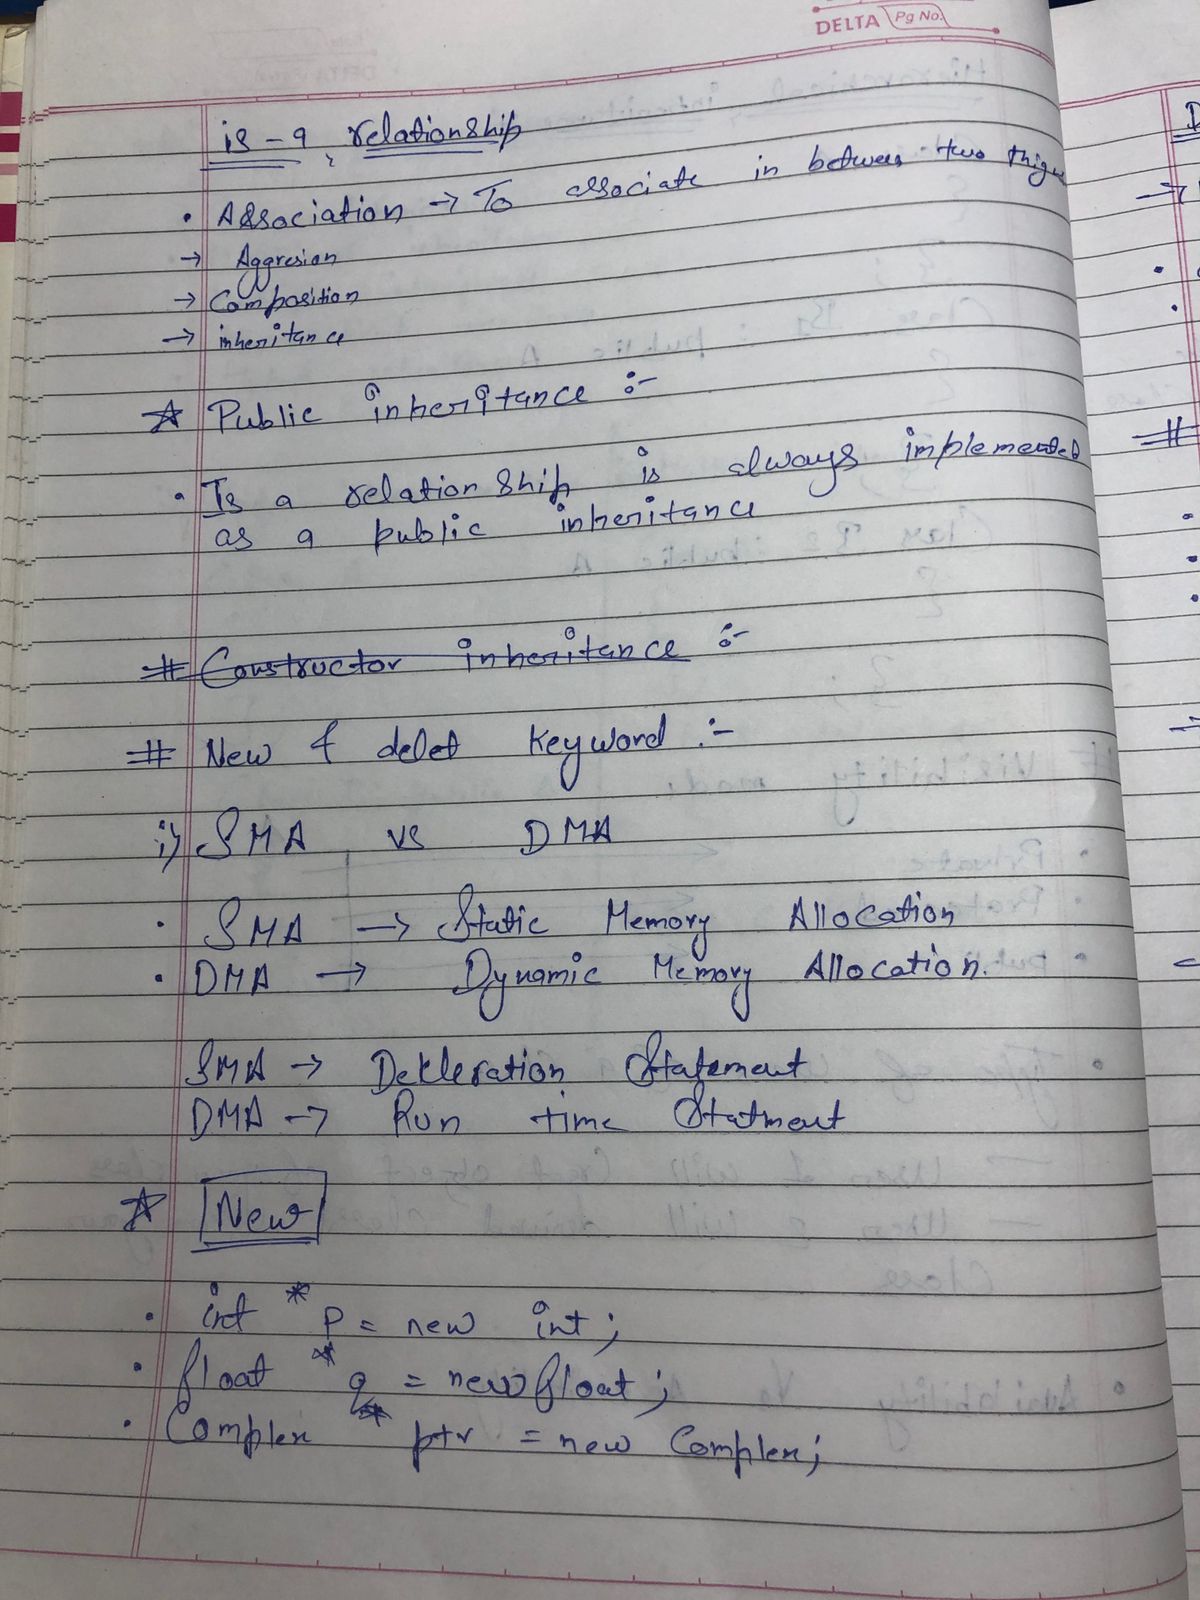 DELTA Pg No.
is-a relationship
• Association → To associate in between two thigns
→ Aggresion
→ Composition
→ inheritance
☆ Public inheritance :-
• Is a relationship is always implemented
as a public inheritance
# Constructor inheritance :-
# New & delet keyword :-
i) SMA vs DMA
• SMA → Static Memory Allocation
• DMA → Dynamic Memory Allocation.
SMA → Dekleration Statement
DMA → Run time Statment
☆ New
• int *p = new int;
• float *q = new float;
• Complex *ptr = new Complex;